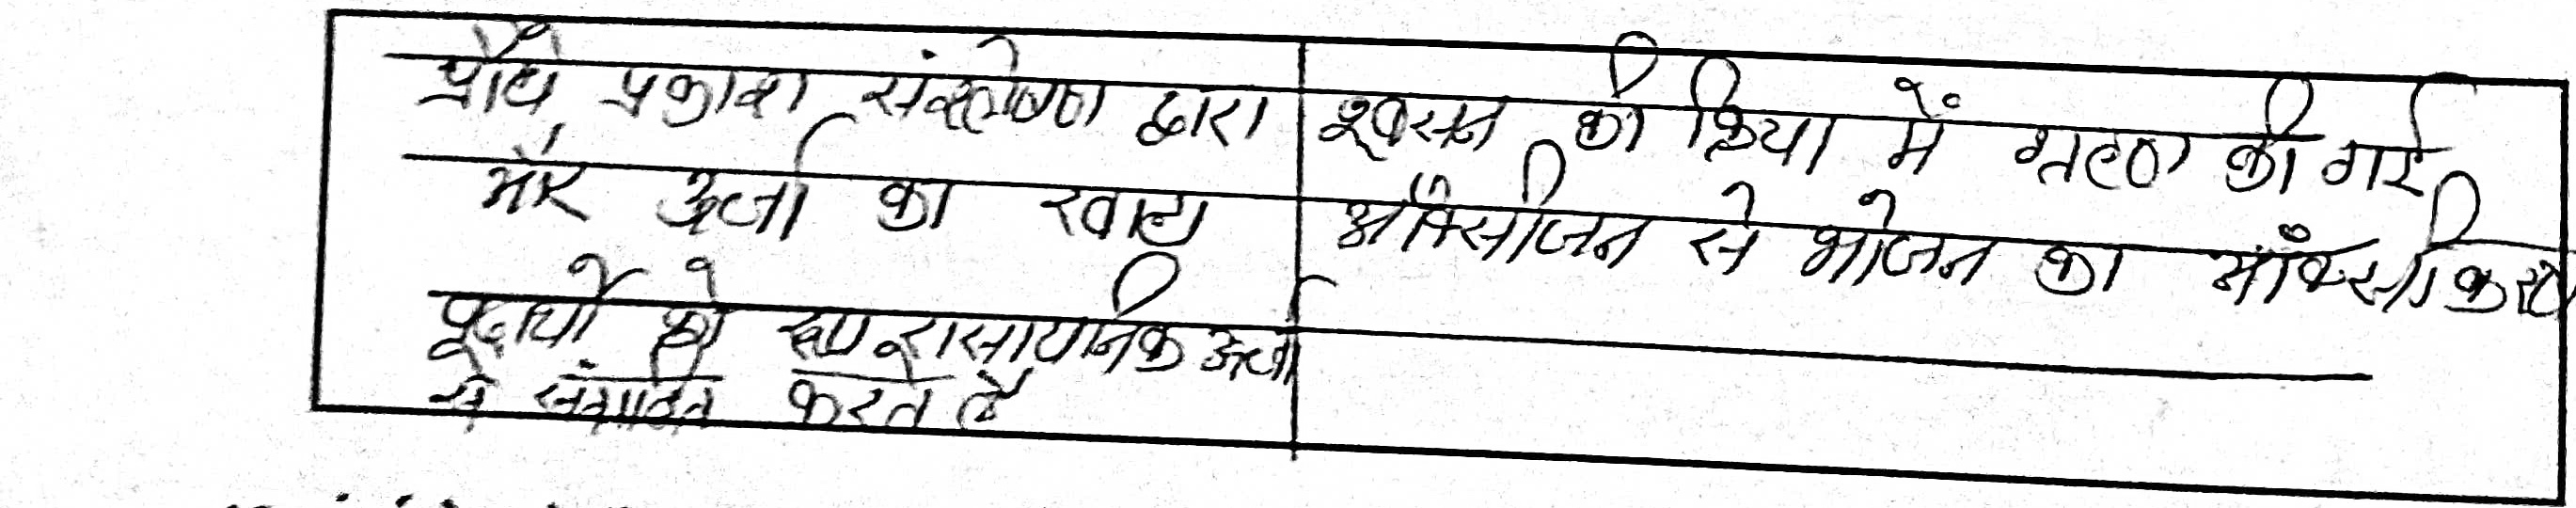 पौधे प्रकाश संश्लेषण द्वारा
सौर ऊर्जा का खाद्य
पदार्थो के रूप रासायनिक ऊर्जा
से संगठित करते है
श्वसन की क्रिया में ग्रहण की गई
ऑक्सीजन से भोजन का ऑक्सीकरण